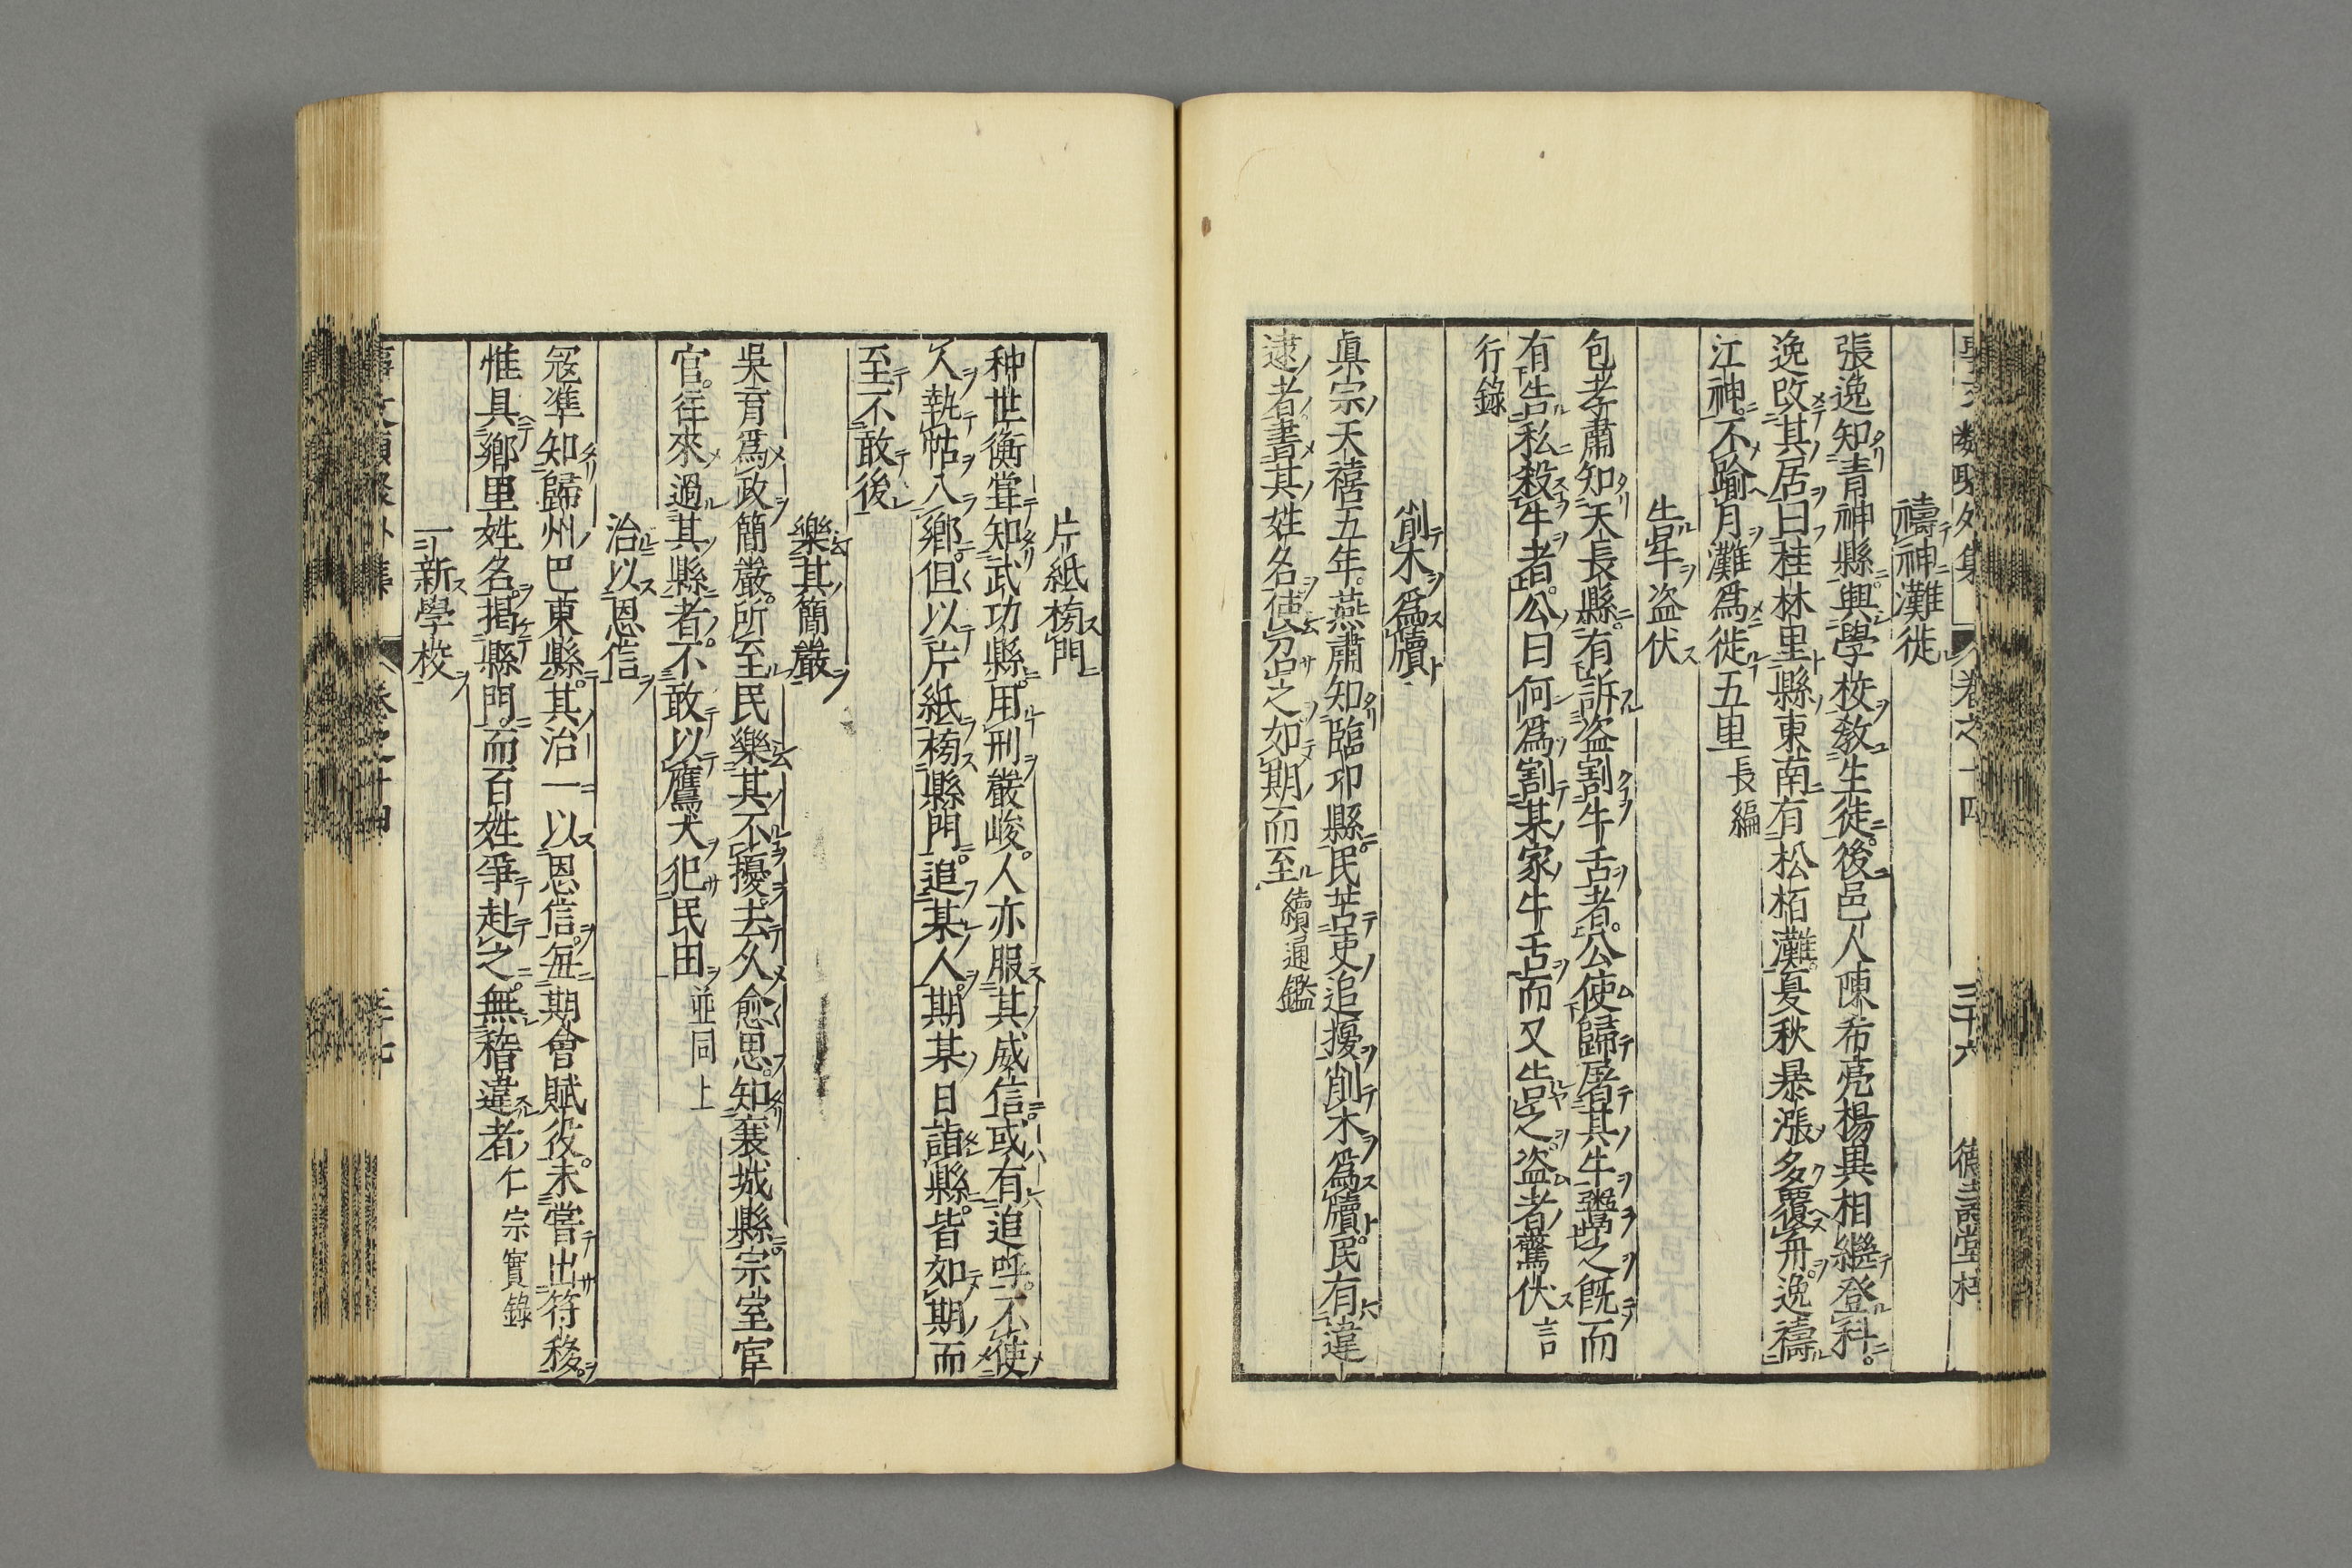 禱神灘徙
張逸知青神縣興學校敎生徒後邑人陳希亮楊異相繼登科
逸改其居曰桂林里縣東南有松栢灘夏秋暴漲多覆舟逸禱
江神不踰月灘爲徙五里長編
告牛盗伏
包孝肅知天長縣有訴盗割牛舌者公使歸屠其牛鬻之既而
有告私殺牛者公曰何爲割某家牛舌而又告之盗者驚伏言
行錄
削木爲牘
眞宗天禧五年燕肅知臨邛縣民苦吏追擾削木爲牘民有違
逮者書其姓名使召之如期而至續通鑑
片紙榜門
种世衡甞知武功縣用刑嚴峻人亦服其威信或有追呼不使
人執帖入鄕但以片紙榜縣門追某人期某日詣縣皆如期而
至不敢後
樂其簡嚴
吳育爲政簡嚴所至民樂其不擾去久愈思知襄城縣宗室宦
官往來過其縣者不敢以鷹犬犯民田並同上
治以恩信
冦準知歸州巴東縣其治一以恩信每期會賦役未嘗出符移
惟具鄕里姓名揭縣門而百姓爭赴之無稽違者仁宗實錄
一新學校